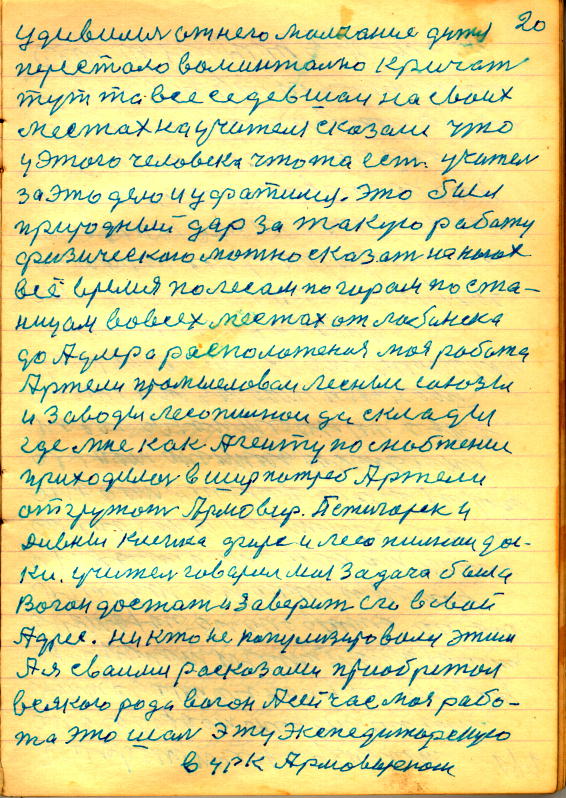 20
удивился от него молчание дитя
перестало воминтално кричат
тут та все седевшаи на своих
местах на учителя сказали что
у этого человека чтота ест. учител
за это дело и ухватился. это был
природный дар за такую работу
физического можно сказат на ногах
всё время по лесам по горам по ста-
ницам вовсех местах от лабинска
до Адлера расположеная моя работа
Артели промысловаи лесные союзы
и заводы лесопилнои да склады
где мне как Агенту по снабжении
приходилос в ширпотреб Артели
отгружат Армовир. Петигорск и
дивны клепка други и лесопилнои дос-
ки. учител говарил моя задача была
вогон достат и заверит его в свой
Адрес. никто не популизировали этим
А я сваими расказами приобретал
всякого рода вогон А сейчас моя рабо-
та это шла эту экспедиторскую
в урк Армовирском